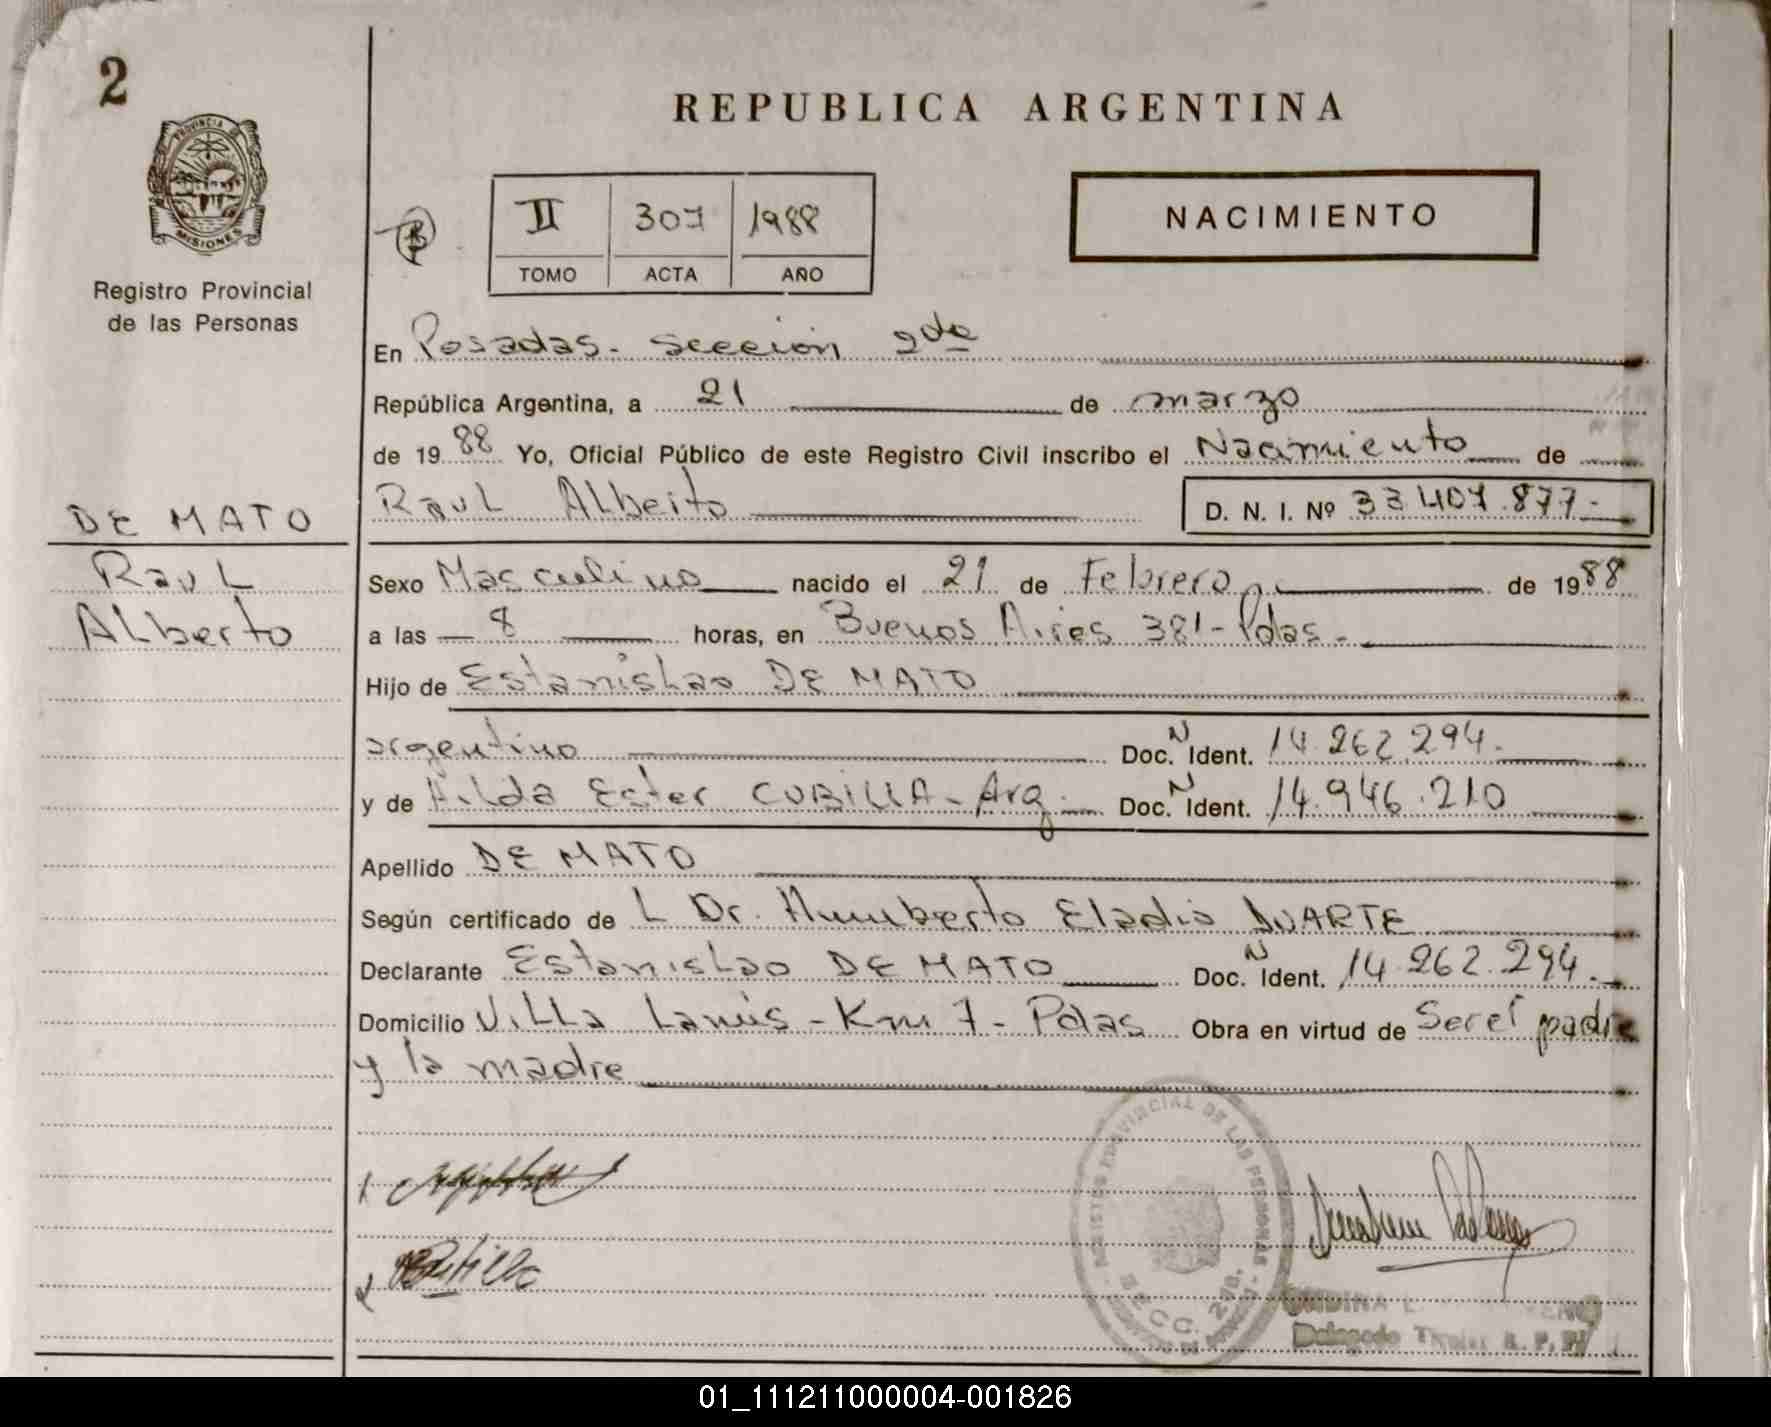 2
REPUBLICA ARGENTINA
PROVINCIA DE
MISIONES
Registro Provincial
de las Personas
II 307 1988
TOMO ACTA AÑO
NACIMIENTO
En Posadas - Sección 2da
República Argentina, a 21 de marzo
de 1988 Yo, Oficial Público de este Registro Civil inscribo el Nacimiento de
Raul Alberto D. N. I. Nº 33 407.877-
DE MATO
Raul
Alberto
Sexo Masculino nacido el 21 de Febrero de 1988
a las 8 horas, en Buenos Aires 381 - Pdas -
Hijo de Estanislao DE MATO
argentino Doc. N Ident. 14.262.294.
y de Hilda Ester CUBILLA - Arg. Doc. N Ident. 14.946.210
Apellido DE MATO
Según certificado de L Dr. Humberto Eladio DUARTE
Declarante Estanislao DE MATO Doc. N Ident. 14.262.294.
Domicilio Villa Lanús - Km 7 - Pdas Obra en virtud de Ser el padre
y la madre
REGISTRO PROVINCIAL DE LAS PERSONAS
SECC. 2da.
Delegado Titular R. P. P.
01_111211000004-001826